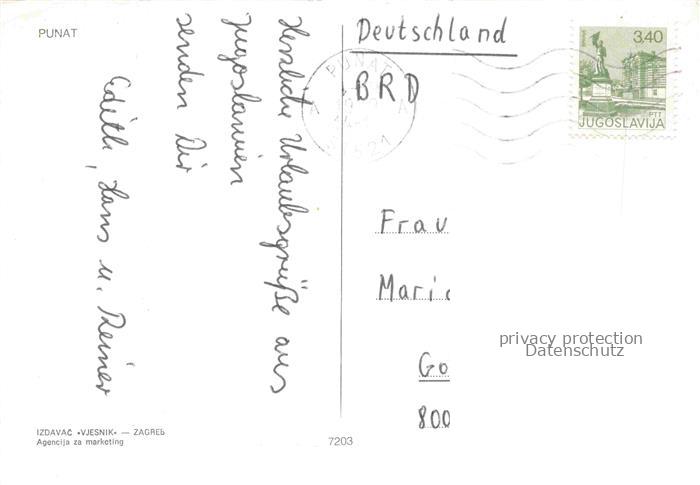 PUNAT
Herzliche Urlaubsgrüße aus
Jugoslawien
senden Dir
Edith, Hans u. Reiner
IZDAVAČ «VJESNIK» — ZAGREB
Agencija za marketing
7203
Deutschland
BRD
PUNAT
A A
3,40
PTT
JUGOSLAVIJA
Frau
Go
800
privacy protection
Datenschutz